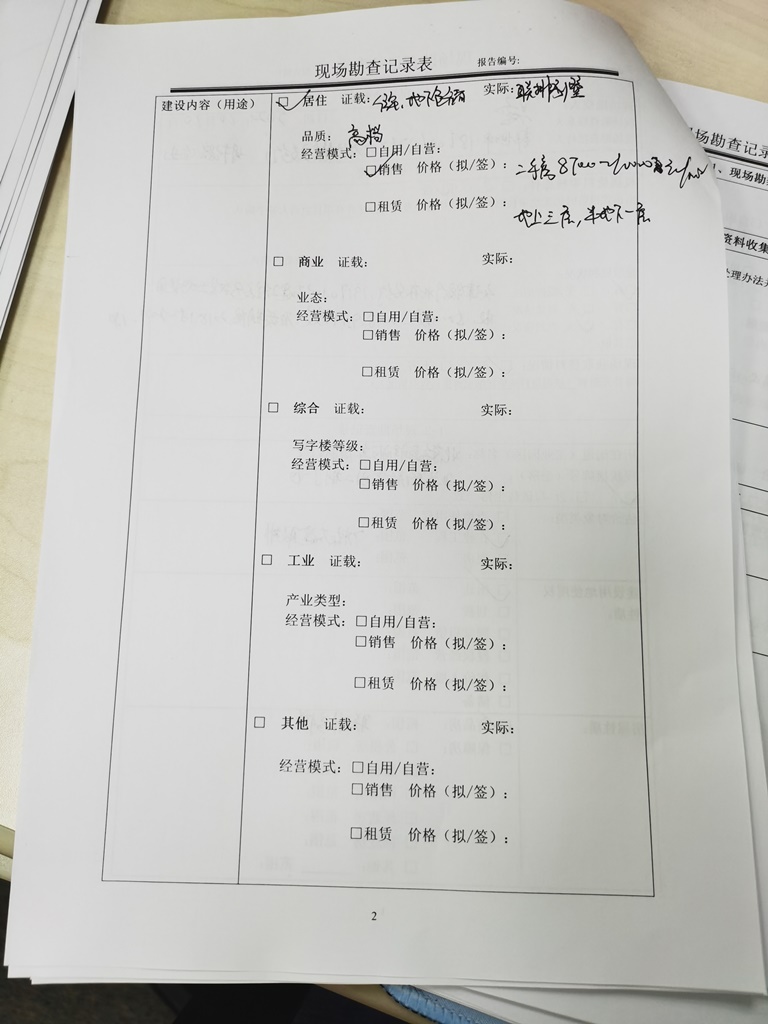 现场勘查记录表 报告编号:
建设内容（用途） □ 居住 证载: 住宅、地下储 实际: 联排别墅
品质: 高档
经营模式: □自用/自营:
□销售 价格（拟/签）: 二手房
□租赁 价格（拟/签）:
地上三层,半地下一层
□ 商业 证载: 实际:
业态:
经营模式: □自用/自营:
□销售 价格（拟/签）:
□租赁 价格（拟/签）:
□ 综合 证载: 实际:
写字楼等级:
经营模式: □自用/自营:
□销售 价格（拟/签）:
□租赁 价格（拟/签）:
□ 工业 证载: 实际:
产业类型:
经营模式: □自用/自营:
□销售 价格（拟/签）:
□租赁 价格（拟/签）:
□ 其他 证载: 实际:
经营模式: □自用/自营:
□销售 价格（拟/签）:
□租赁 价格（拟/签）:
2
场勘查记录
、现场勘
资料收集
处理办法